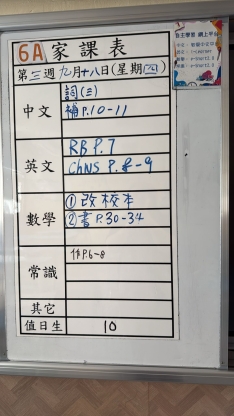 6A 家課表
第三週 九月十八日(星期四)
中文
詞(三)
補P.10-11
英文
RB P.7
ChNS P.8-9
數學
①改校本
②書P.30-34
常識
作P.6-8
其它
值日生 10
自主學習 網上平台